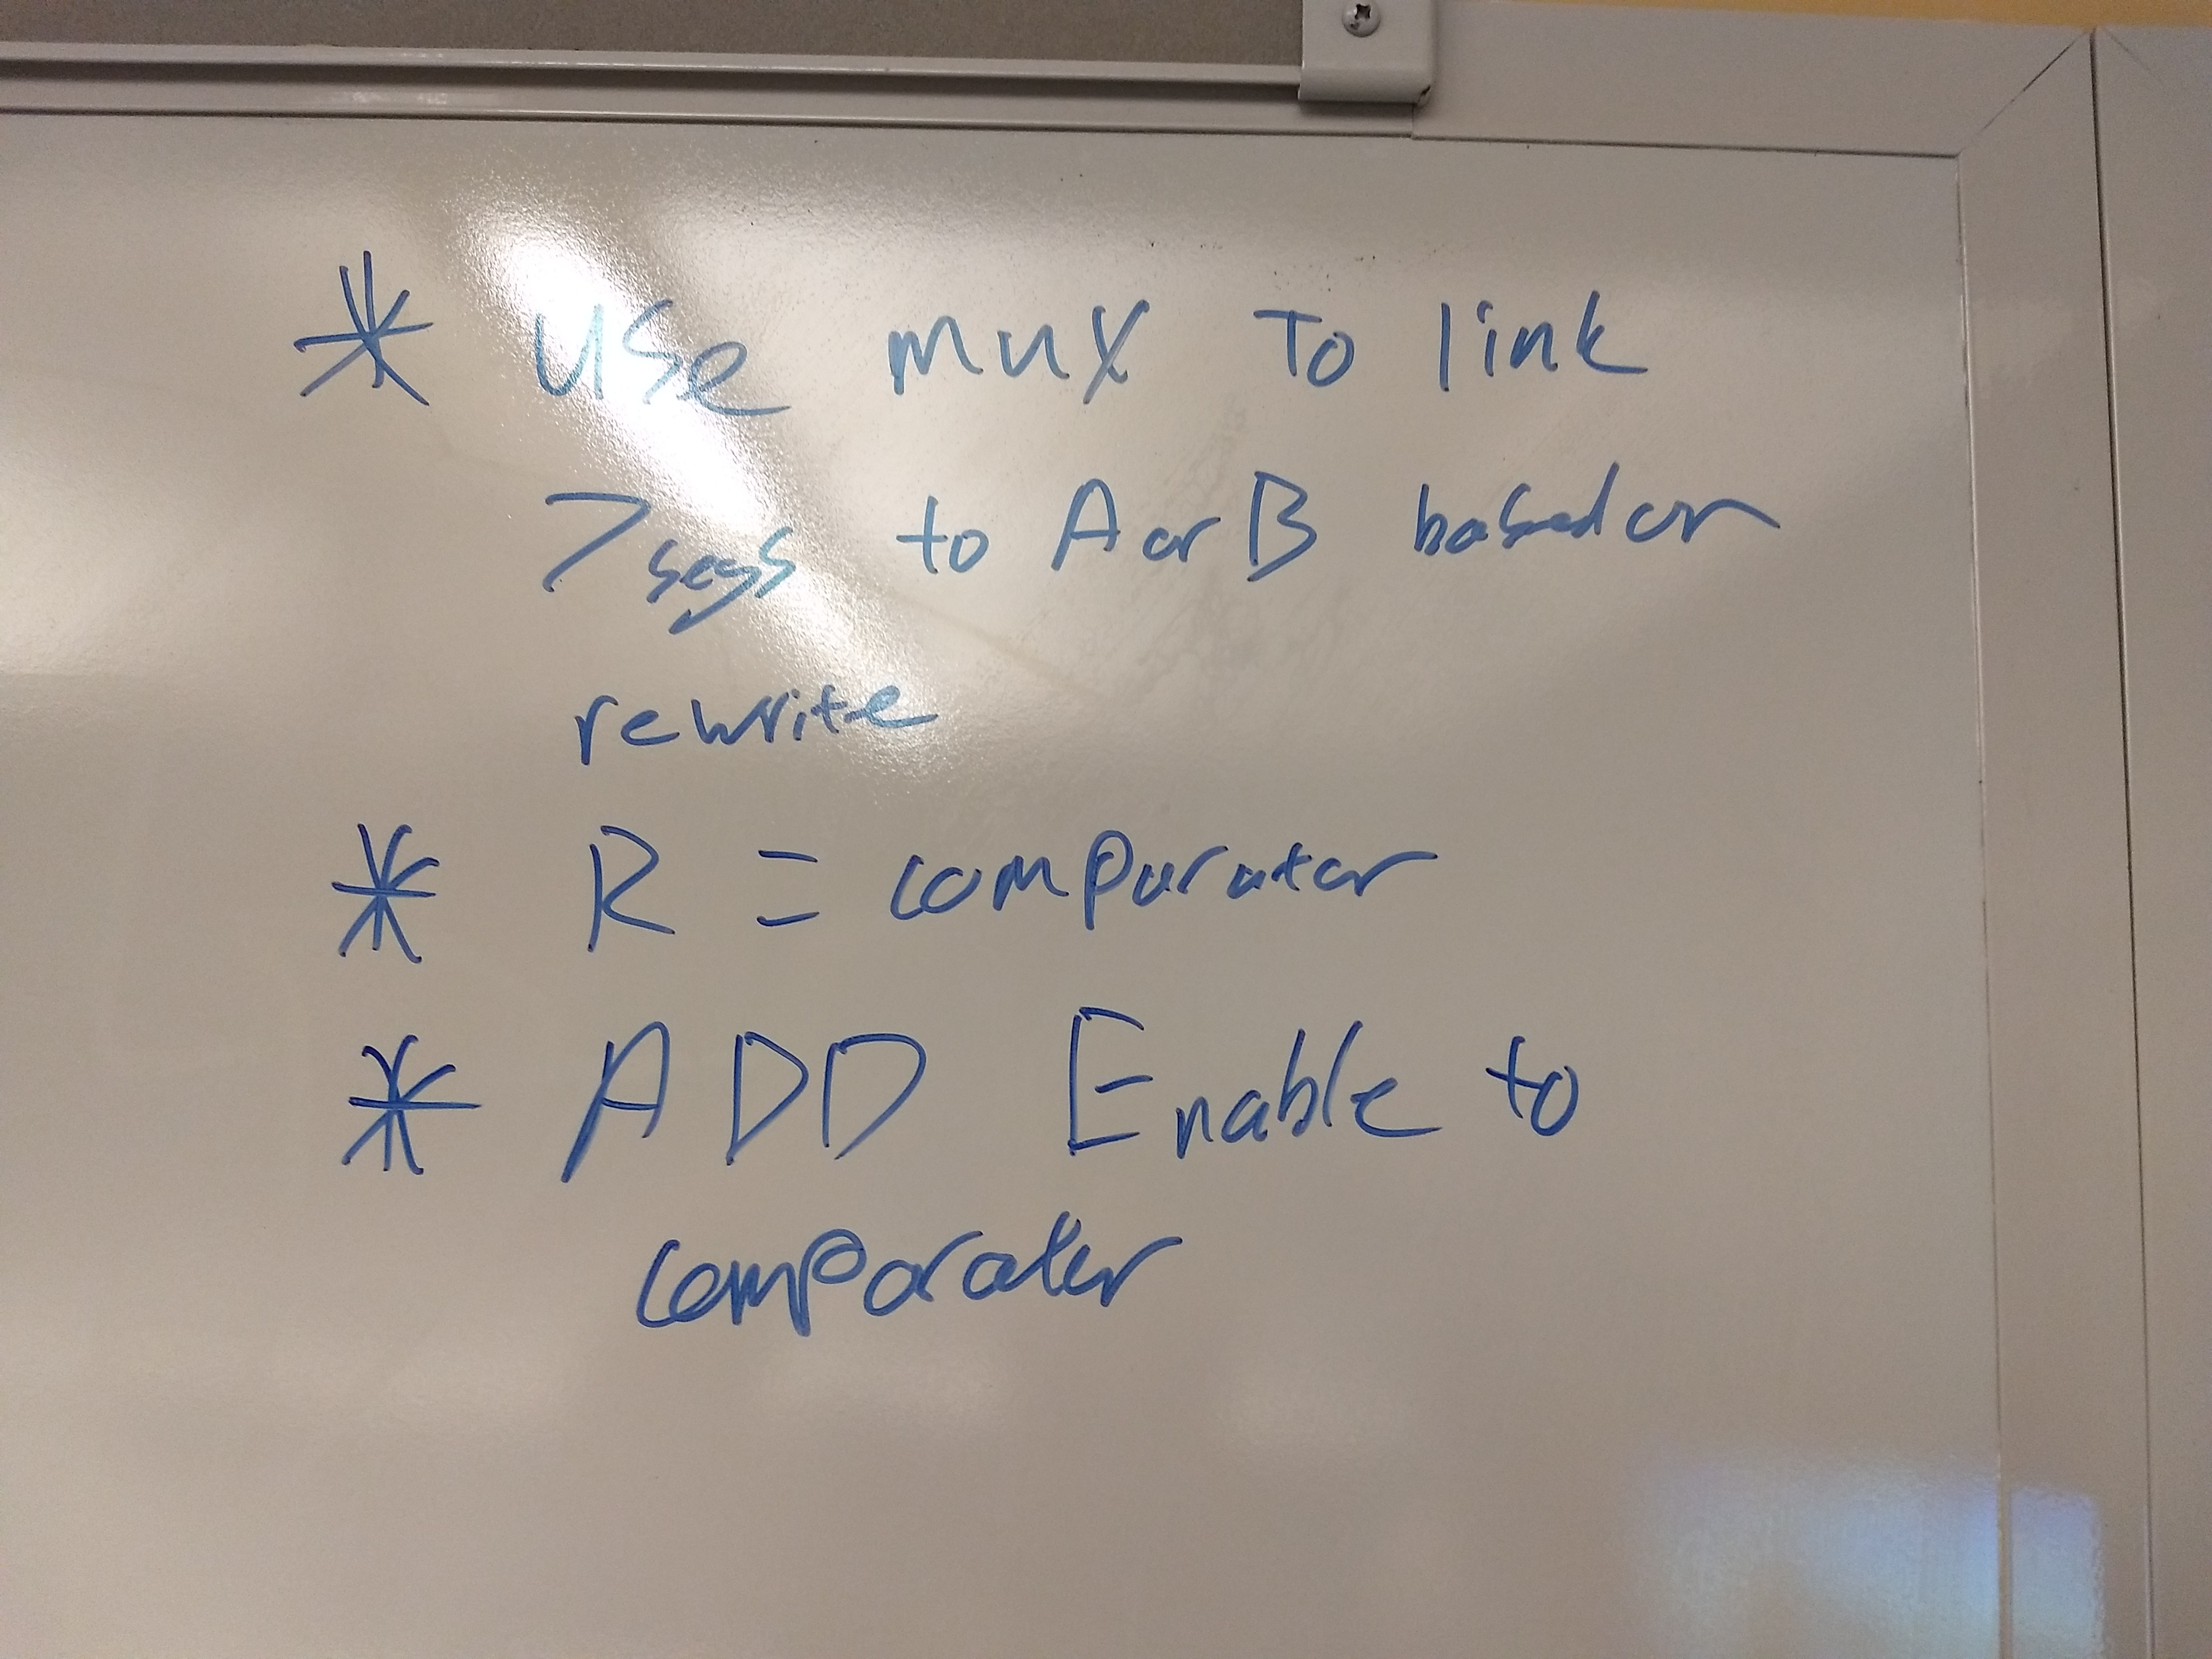 * Use mux To link
7segs to A or B based on
rewrite
* R = comparator
* ADD Enable to
comparator